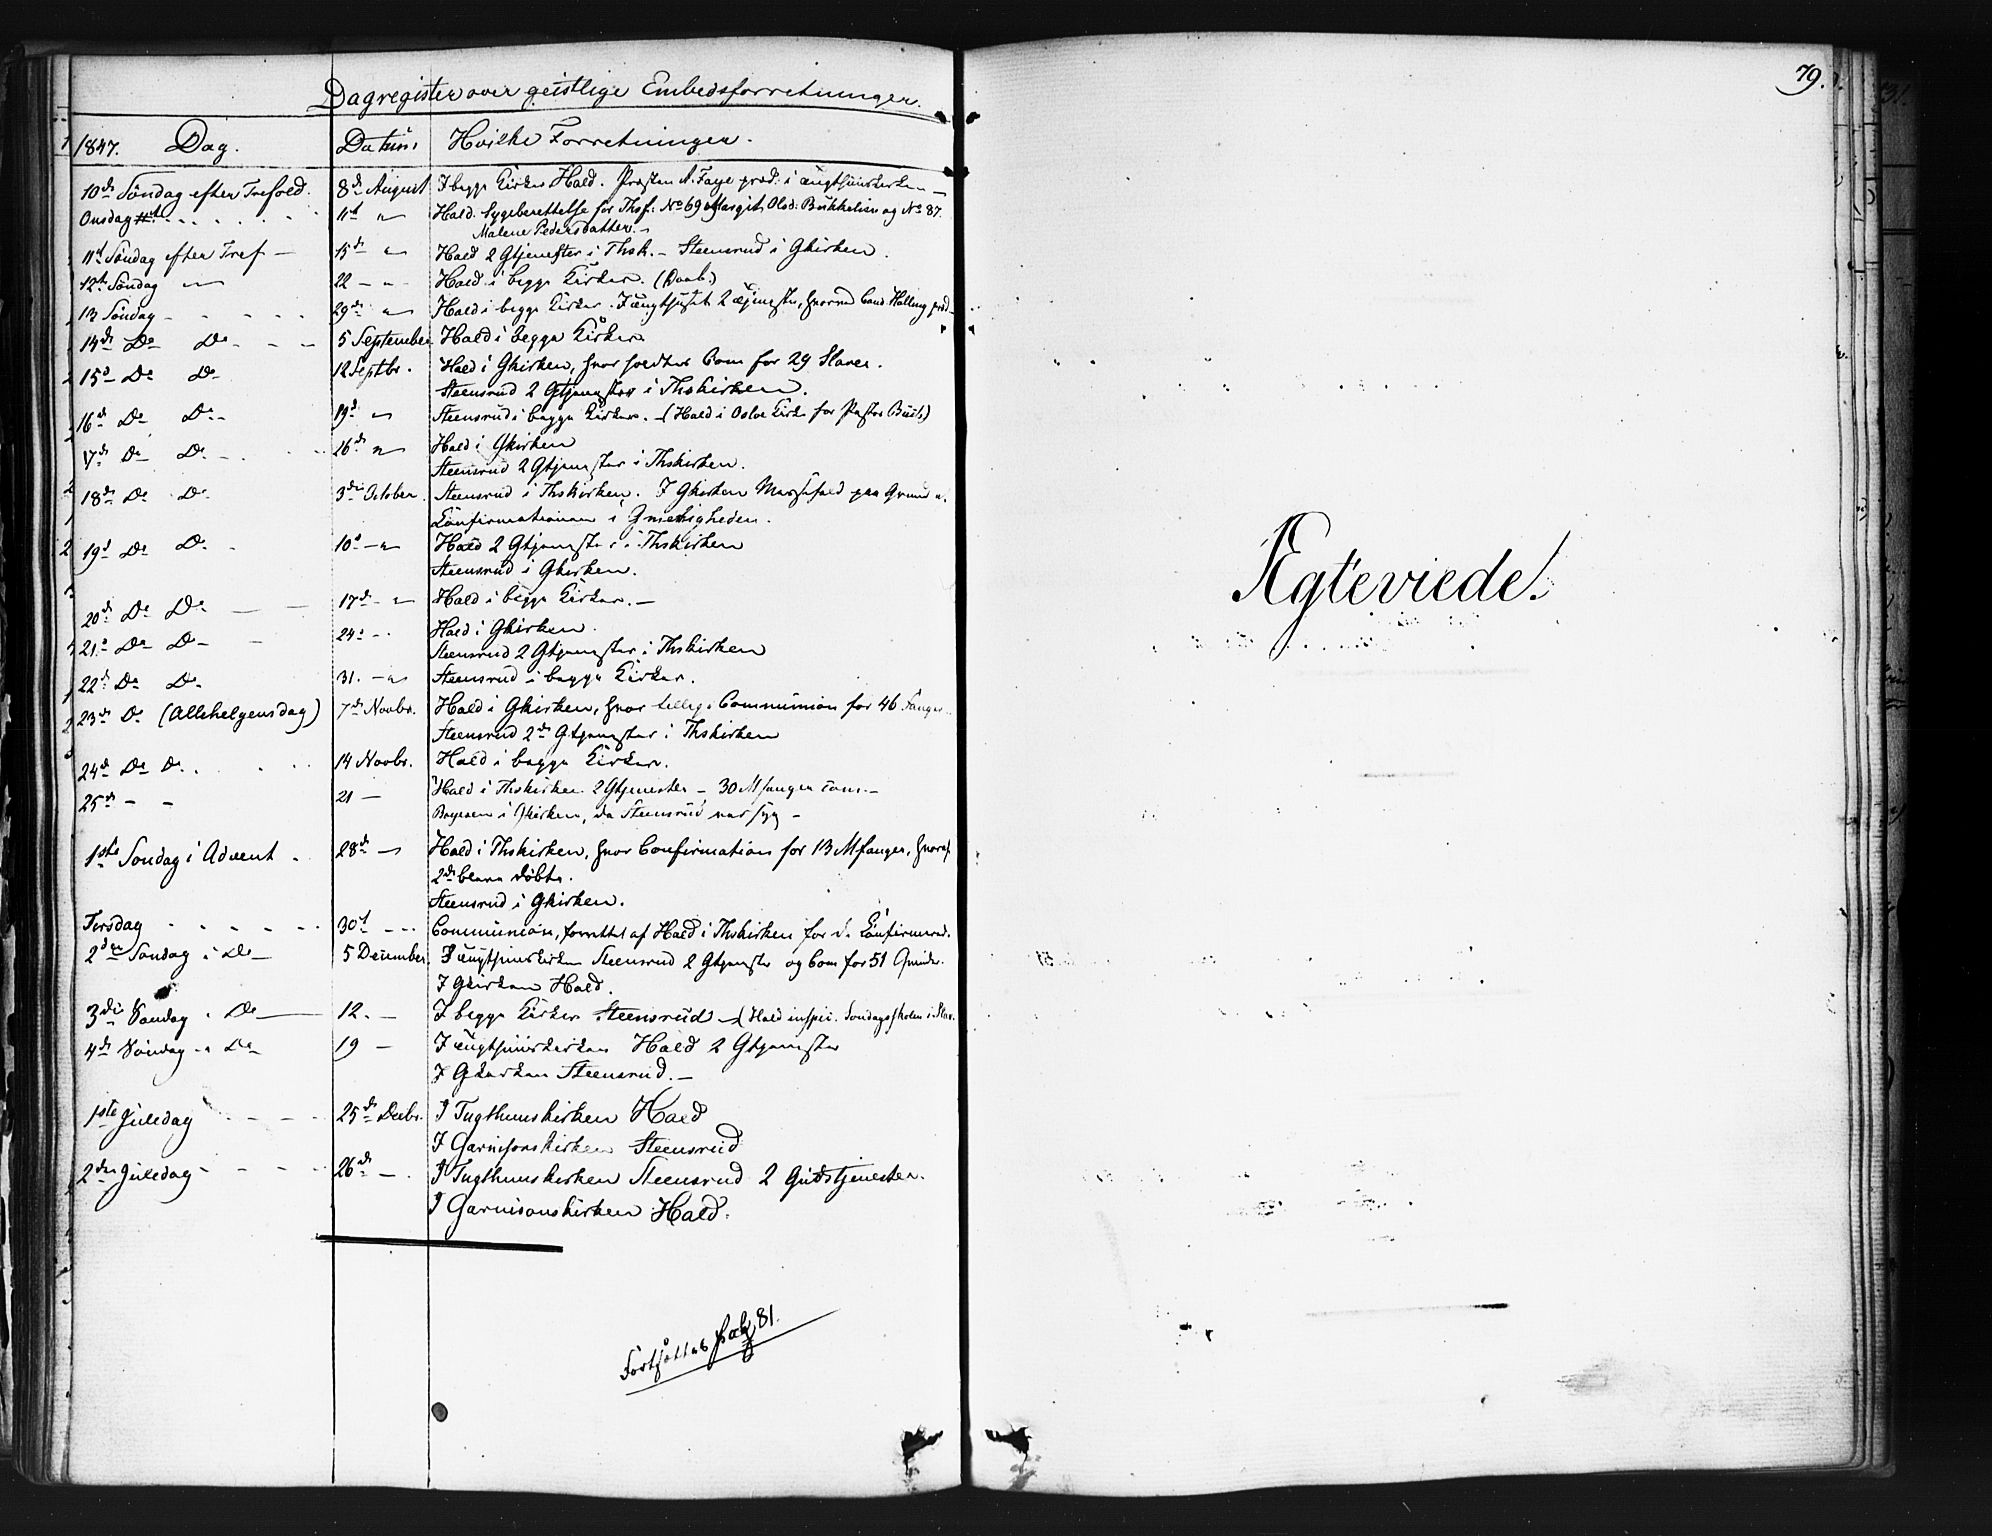 Dagregister over geistlige Embedsforretninger.
1847. Dag. Datum: Hvilke Forretninger.
10de Søndag efter Trefold. 8de August I begge Kirker Hald. Præsten A. Faye præd. i Tugthuuskirken
Onsdag 11te " Hald. Sygeberettelse for Thsf. No 69 Margit Olsd: Bükkelien og No 87.
Malene Pedersdatter.
11te Søndag efter Tref - 15de " Hald 2 Gtjenester i Thsk. - Steensrud i Gkirken.
12te Søndag " 22 - " Hald i begge Kirker. (Daab.)
13 Søndag - 29de " Hald i begge Kirker. I Tugthuset 2 Gtjenester, hvorved Cand. Halling præd.
14de Do Do - 5 September Hald i begge Kirker
15de Do Do 12 Septbr. Hald i Gkirken, hvor holdtes Com for 29 Slaver.
Steensrud 2 Gtjenester i Thskirken.
16de Do Do - 19de " Steensrud i begge Kirker. - (Hald i Oslo Kirke for Pastor)
17de Do Do. - 26de " Hald i Gkirken
Steensrud 2 Gtjenester i Thskirken.
18de Do Do 3die October. Steensrud i Thskirken. I Gkirken Messefald paa Grund a.
Confirmationen i Gmenigheden.
19de Do Do. 10de - " Hald 2 Gtjenester i Thskirken
Steensrud i Gkirken.
20de Do Do - 17de - " Hald i begge Kirker. -
21de Do Do - 24de - Hald i Gkirken.
Steensrud 2 Gtjenester i Thskirken
22de Do Do. 31. - " Steensrud i begge Kirker.
23de Do (Allehelgensdag) 7de Novbr. Hald i Gkirken, hvor tillige Communion for 46 Fanger
Steensrud 2de Gtjenester i Thskirken
24de Do Do. 14 Novbr. Hald i begge Kirker.
25de - - 21 - Hald i Thskirken 2 Gtjenester - 30 Mfanger com. -
i Gkirken, da Steensrud var syg -
1ste Søndag i Advent. 28de - Hald i Thskirken, hvor Confirmation for 13 Mfanger, hvoraf
2de bleve døbte.
Steensrud i Gkirken.
Tirsdag 30te - Communion, forrettet af Hald i Thskirken for de Confirmered.
2den Søndag i Do - 5 December. I Tugthuuskirken Steensrud 2 Gtjenester og Com for 51 Qvinder.
I Gkirken Hald.
3die Søndag i Do 12. - I begge Kirker Steensrud - (Hald inspic. Søndagsskolen i Slav.
4de Søndag - " Do 19 - I Tugthuuskirken Hald 2 Gtjenester
I Gkirken Steensrud. -
1ste Juledag 25de Decbr. I Tugthuuskirken Hald
I Garnisonskirken Steensrud
2den Juledag 26de - I Tugthuuskirken Steensrud 2 Gudstjenester.
I Garnisonskirken Hald.
Fortsættes pag 81.
79.
Ægteviede!